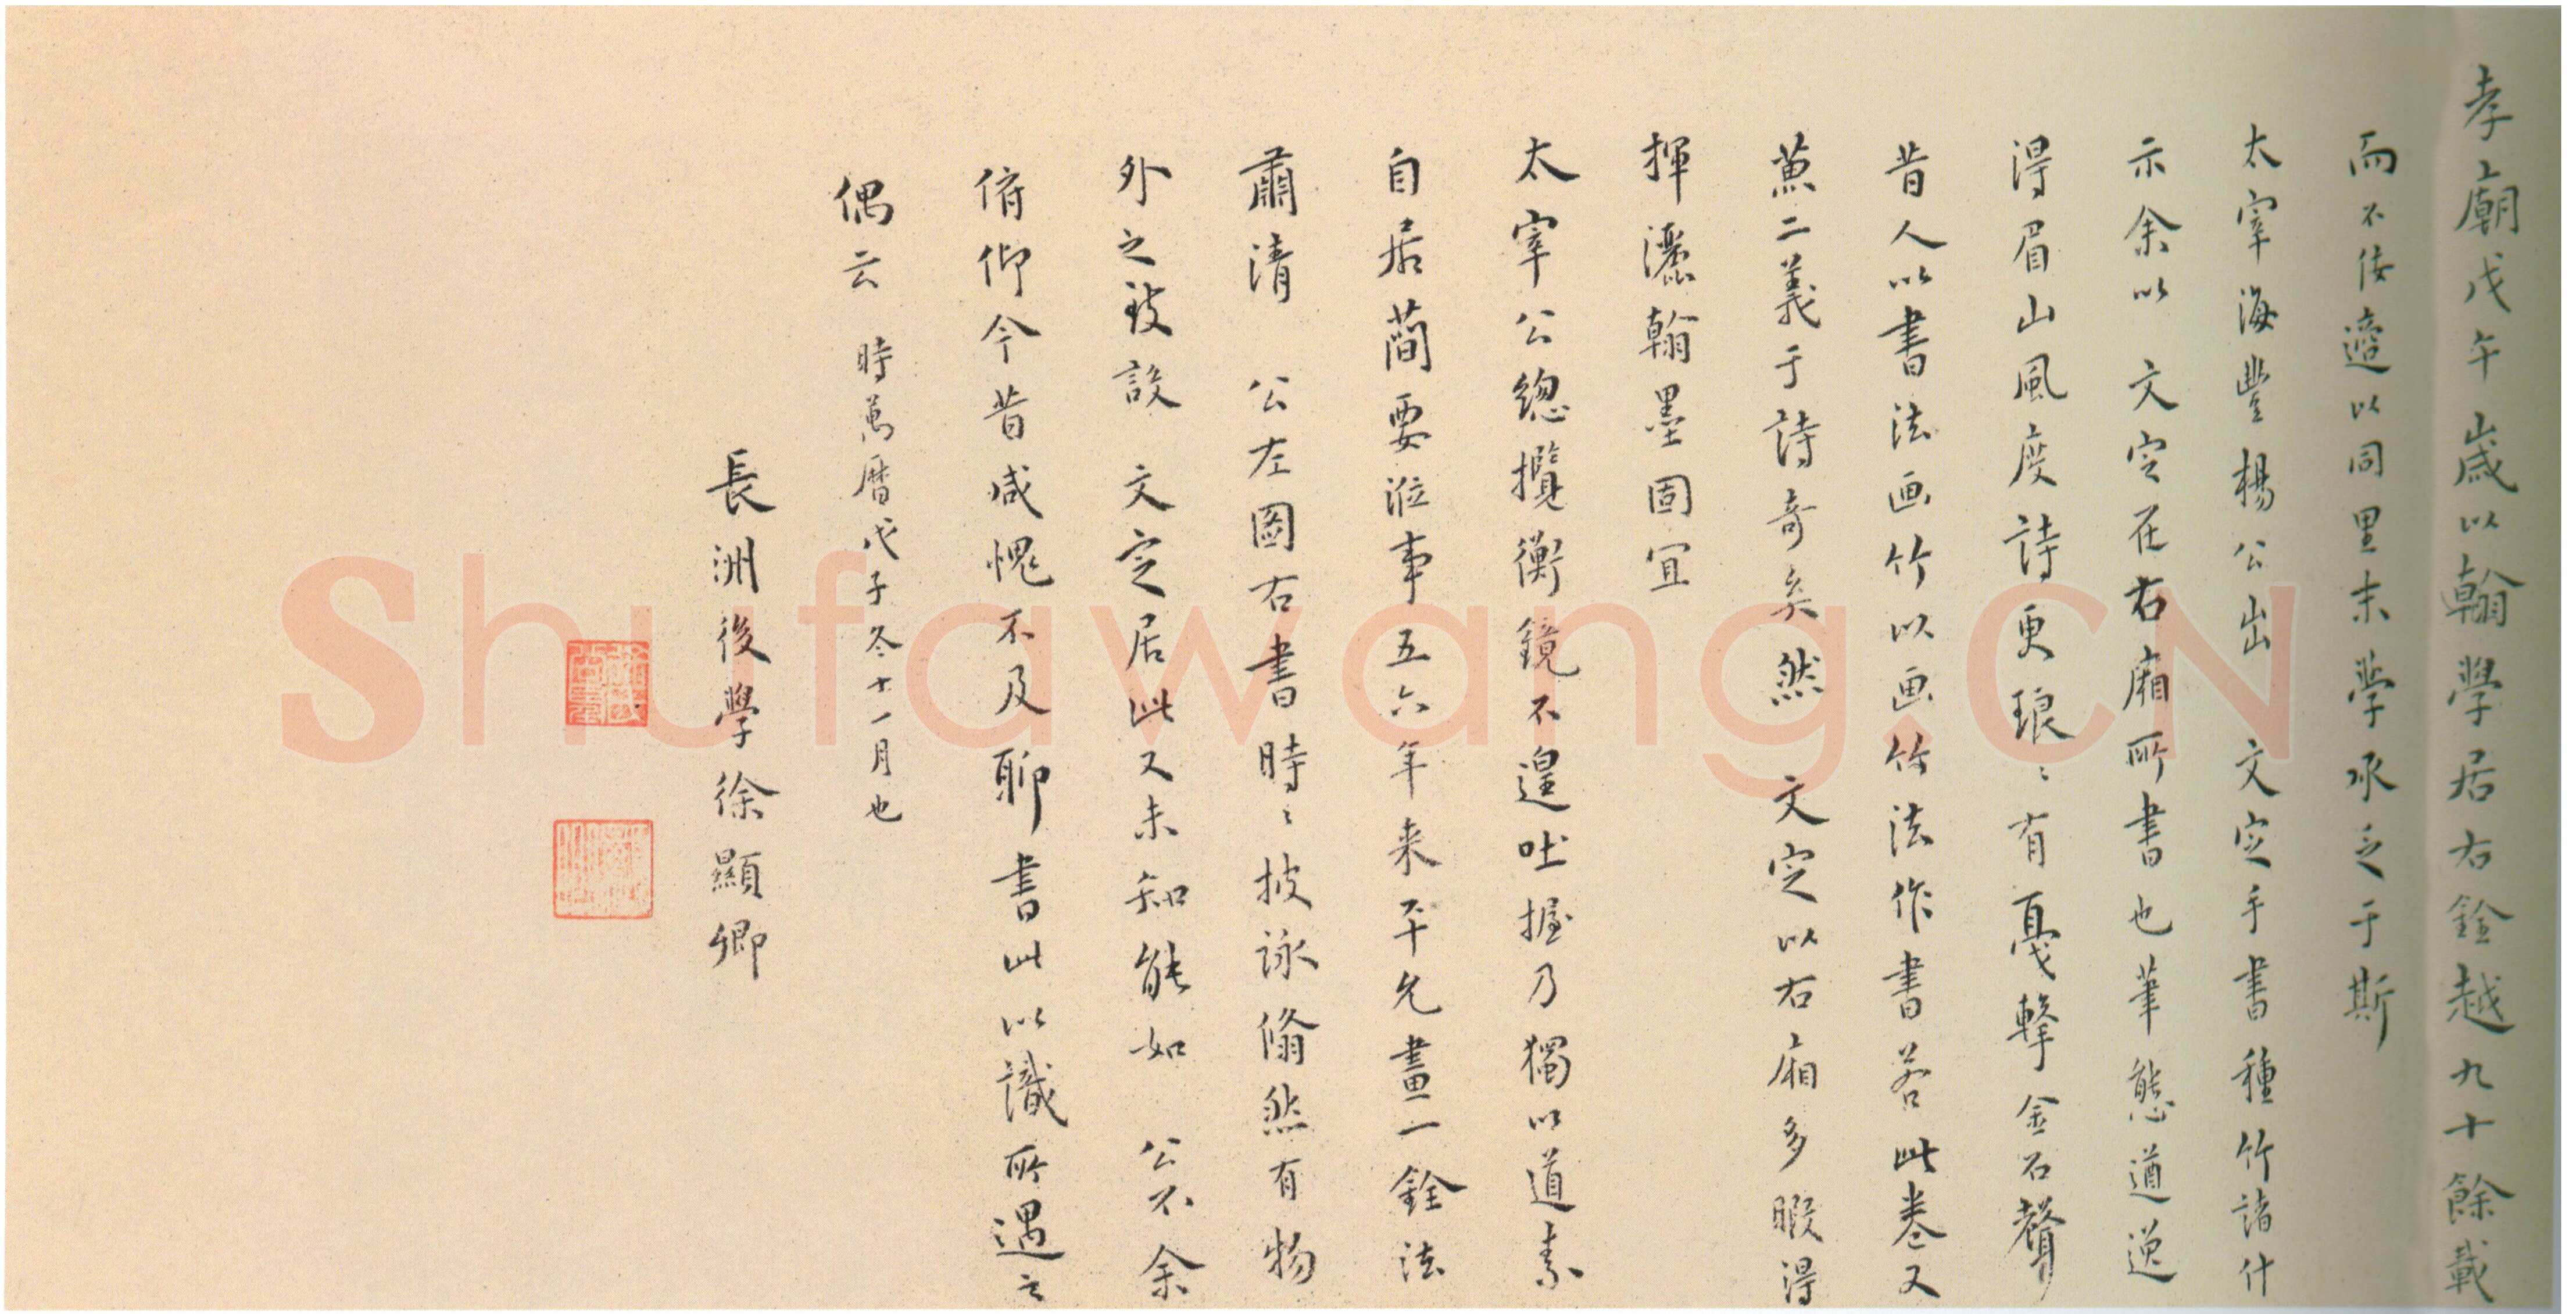 孝廟戊午歲以翰學居右銓越九十餘載
而不佞適以同里末學承乏于斯
太宰海豐楊公出 文定手書種竹諸什
示余以 文定在右廂所書也筆態遒逸
得眉山風度詩更琅〻有戛擊金石聲
昔人以書法画竹以画竹法作書若此卷又
兼二義于詩奇矣然 文定以右廂多暇得
揮灑翰墨固宜
太宰公總攬衡鏡不遑吐握乃獨以道素
自居蕳要涖事五六年来平允畫一銓法
肅清 公左圖右書時〻披詠翛然有物
外之致設 文定居此又未知能如 公不余
俯仰今昔咸愧不及聊書此以識所遇之
偶云 時萬曆戊子冬十一月也
長洲後學徐顯卿
Shufawang.CN